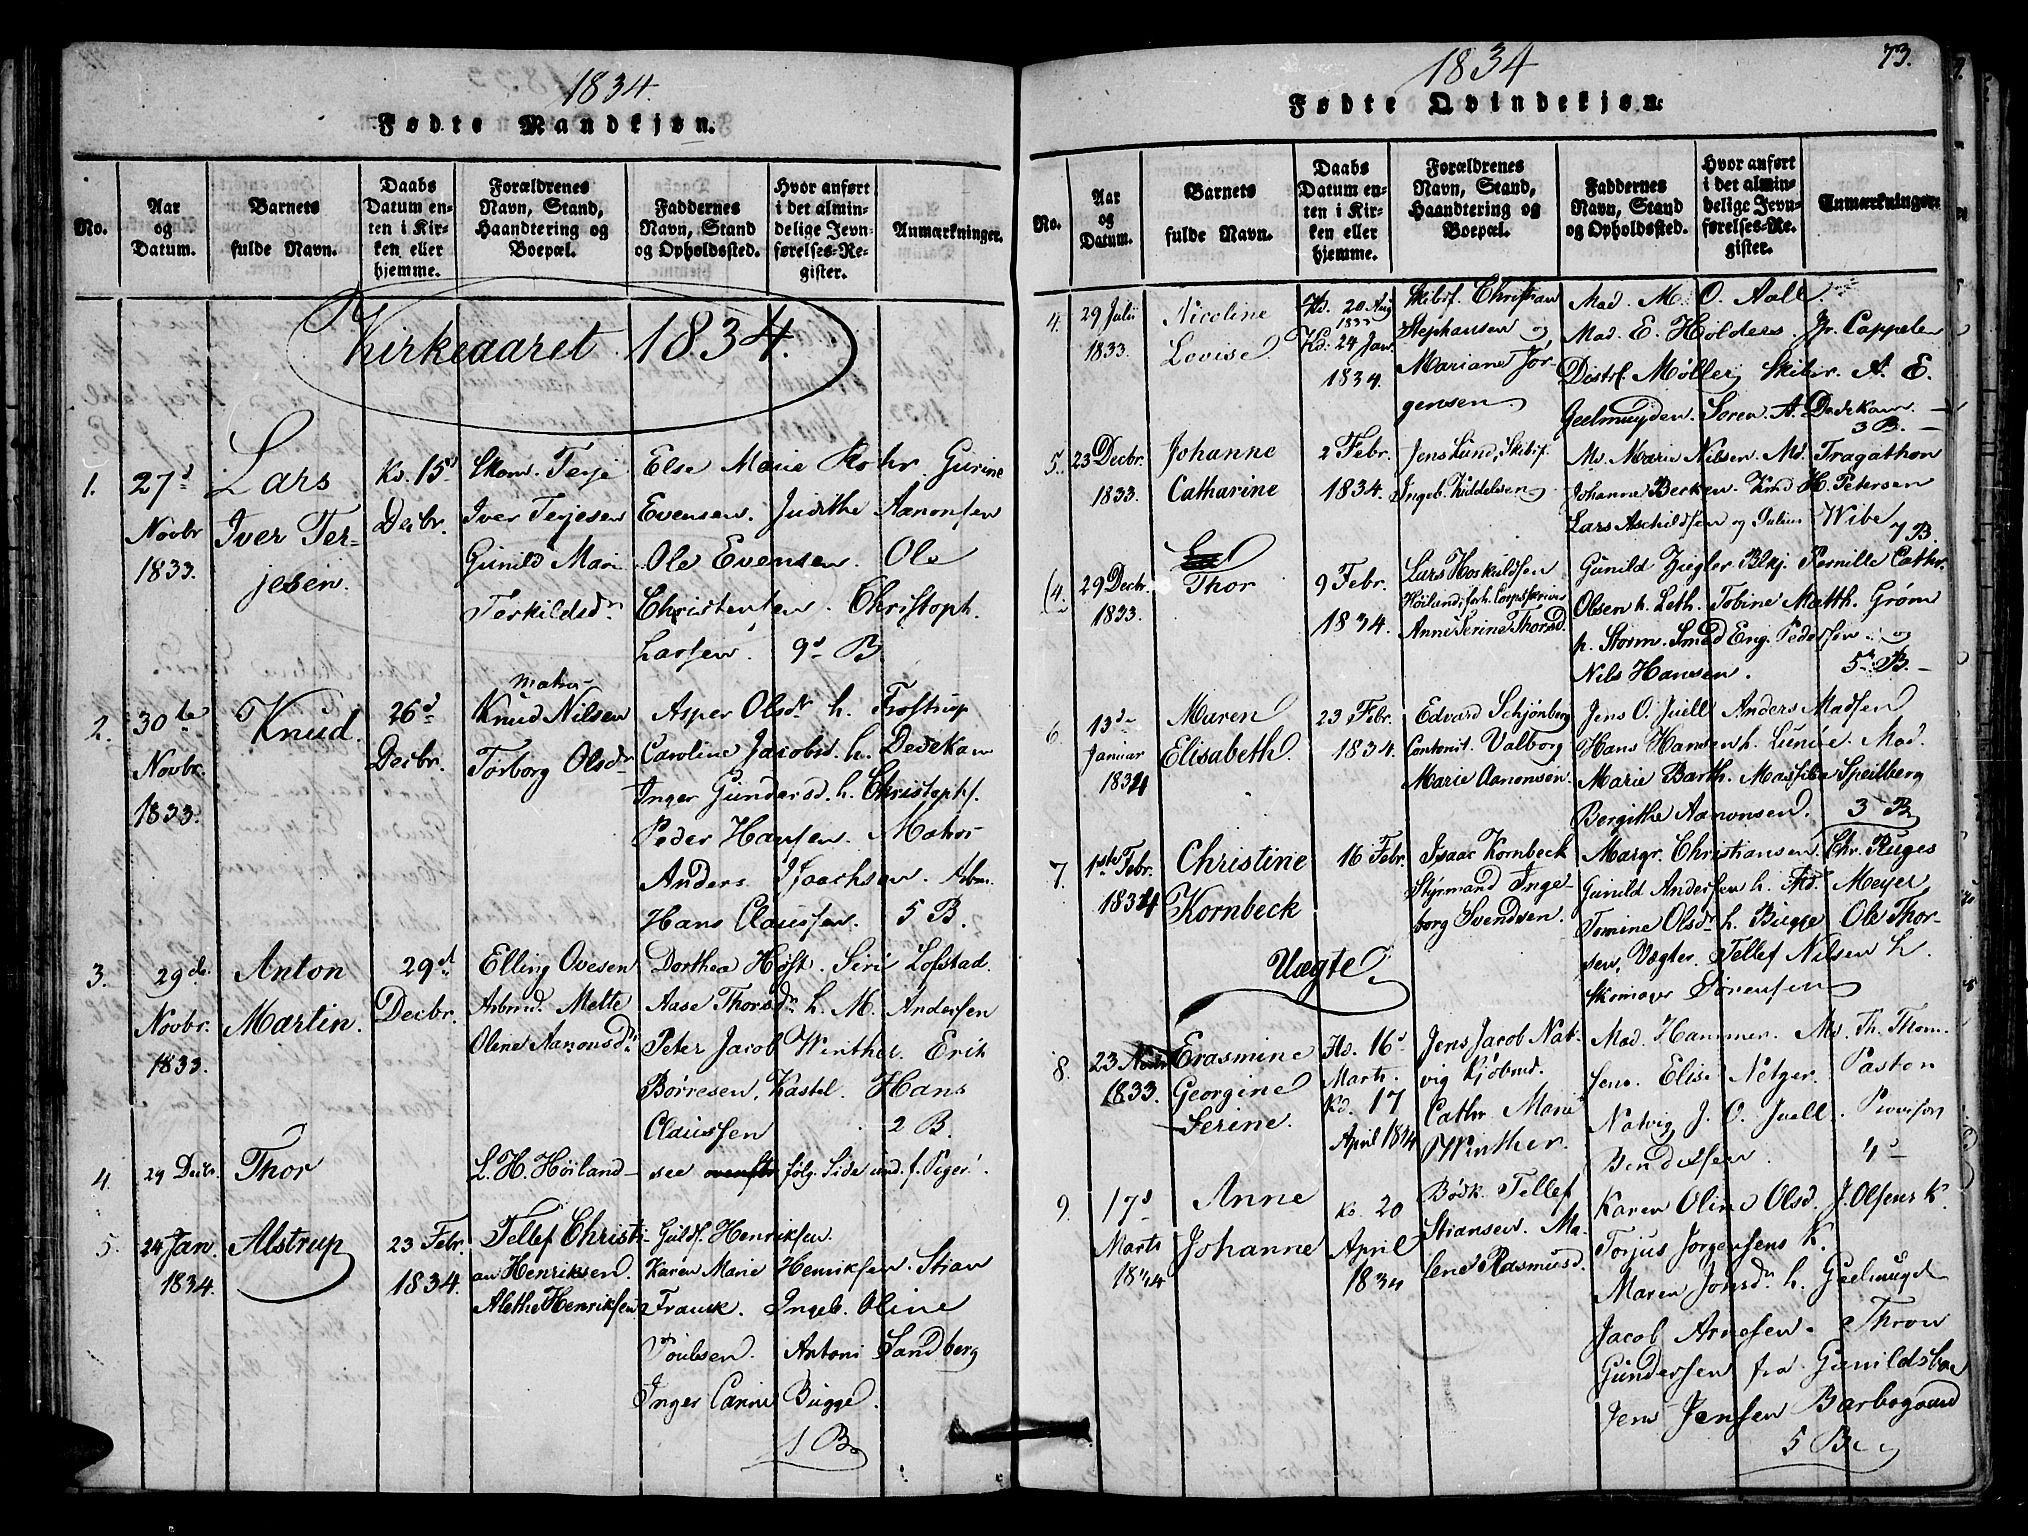 1834.
Fødte Mandkjøn.
No.
Aar og Datum.
Barnets fulde Navn.
Daabs Datum enten i Kirken eller hjemme.
Forældrenes Navn, Stand, Haandtering og Boepæl.
Faddernes Navn, Stand og Opholdssted.
Hvor anført i det almindelige Jevnførelses-Register.
Anmærkninger.
Kirkeaaret 1834.
1.
27d
Novbr
1833.
Lars
Iver Ter-
jesen.
Kd. 15d
Decbr.
Skom. Terje
Iver Terjesen
Gunild Mari
Terkildsdr
Else Marie Rohr. Gurine
Evensen. Judithe Aanonsen
Ole Evensen. Ole
Christensen. Christoph.
Larsen. 9d B
2.
30te
Novbr.
1833.
Knud.
26d
Decbr.
Matros
Knud Nilsen
Torborg Olsdr
Asper Olsdr h. Frostrup
Caroline Jacobsd. h. Dedekam
Inger Gundersd. h. Christophf.
Peder Hansen. Matros
Anders Isachsen.
Hans Claussen. 5 B.
3.
29de
Novbr.
1833.
Anton
Martin.
29d
Decbr.
Elling Ovesen
Arbmd. Mette
Olene Aanonsdr
Dorthea Høst. Siri Lofstad.
Aase Thorsdr h. M. Andersen
Peter Jacob Winther. Erik
Børresen, Kastel. Hans
Claussen 2 B.
4.
29 Decbr.
Thor
L. H. Høiland
see følg. Side und. f. Piger.
5.
24 Jan.
1834.
Alstrup
23 Febr.
1834.
Tellef Christi-
an Henriksen.
Alethe Henriksen
Guldf. Henriksen.
Karen Marie Henriksen. Stian
Franck. Ingeb. Oline
Poulsen. Antoni Sandberg
Inger Carine Bugge.
1 B.
1834
73.
Fødte Qvindekjøn.
No.
Aar og Datum.
Barnets fulde Navn.
Daabs Datum enten i Kirken eller hjemme.
Forældrenes Navn, Stand, Haandtering og Boepæl.
Faddernes Navn, Stand og Opholdssted.
Hvor anført i det almindelige Jevnførelses-Register.
Anmærkninger.
4.
29 Julii
1833.
Nicoline
Lovise
Hd. 20 Aug
1833
Kd. 24 Jan.
1834.
Skibsf. Christian
Stephansen og
Mariane Jør-
gensen
Mad. M. O. Aall.
Mad. E. Holders. Jr. Cappelen
Distrl. Møller, Skibr. A. E.
Geelmuyden. Soren A. Dedekam.
3 B.
5.
23 Decbr.
1833.
Johanne
Catharine
2 Febr.
1834.
Jens Lund, Skibsf.
Ingeb. Kiddelsen
Md. Marie Nilsen. Md. Tragathon
Johanne Becken. Knud H. Petersen
Lars Aschildsen og Julius Wibe
7 B.
(4.
29 Decbr.
1833.
Thor
9 Febr.
1834.
Lars Hoskuldsen
Høiland, forh. Corpsskriver
Anne Serine Thorsd.
Gunild Ziegler Blkj. Pernille Cathr.
Olsen h. Leth. Tobine Matth. Grøm
h. Storm. Smed Eng. Pedersen og
Nils Hansen. 5 B.
6.
13d
Januar
1834
Maren
Elisabeth.
23 Febr.
1834.
Edvard Schjønberg
Contorist. Valborg
Marie Aanonsen.
Jens O. Juell Anders Madsen
Hans Hansen h. Lunde. Mad.
Marie Barth. Massibe Speilberg
Bergithe Aanonsen. 3 B.
7.
1ste Febr.
1834
Christine
Kornbeck
16 Febr.
Isaac Kornbeck
Styrmand Inge-
borg Svendsen.
Margr. Christiansen. Chr. Ruges
Gunild Andersen h. Th. Meyer
Tomine Olsdr h. Bugge Ole Thor-
sen, Vægter. Tellef Nilsen h.
Skomager Sørensen
Uægte
8.
23
1833.
Erasmine
Georgine
Serine.
Hd. 16d
Marts.
Kd. 17
April 1834
Jens Jacob Nat-
vig Kjøbmd.
Cathr Marie
Winther.
Mad. Hammer. Md. Th. Thom-
sens. Elise Netzer. Paston
Natvig, J. O. Juell. Provisor
Bendixsen. 4
9.
17d
Marts
1834
Anne
Johanne
Kd. 20
April
1834
Bødk. Tellef
Stiansen. Ma-
lene Rasmusd.
Karen Oline Olsd. J. Olsens K.
Torjus Jorgensens K.
Maren Jonsdr h. Geelmuyd
Jacob Arnesen. Thron
Gundersen fra Gunildsboe
Jens Jensen Barbogaard
5 B.